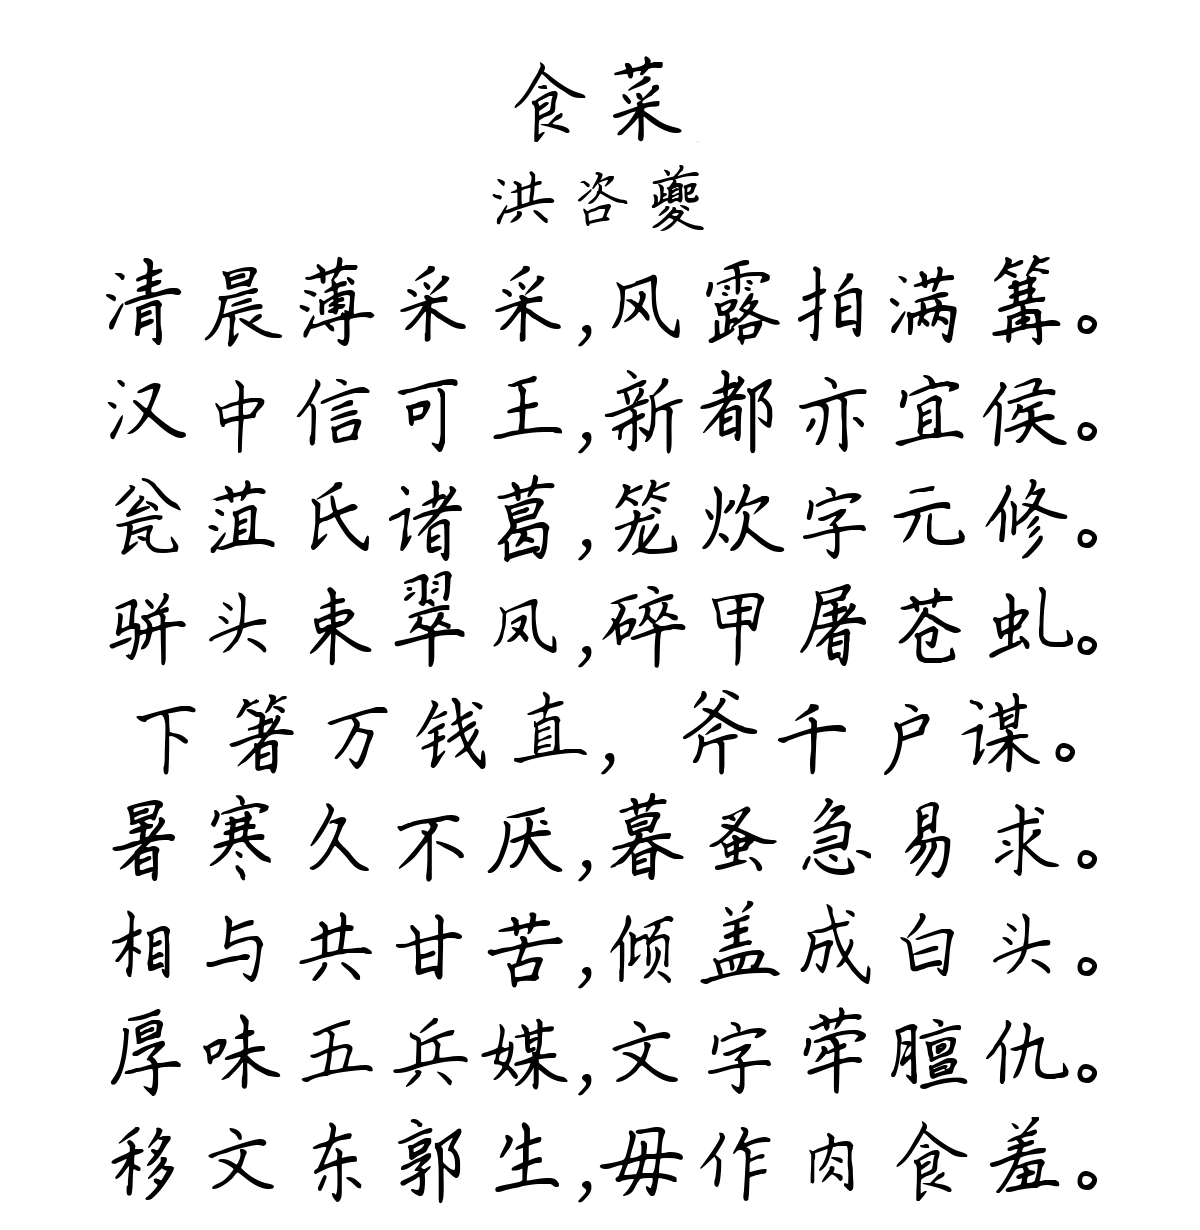 食菜
洪咨夔
清晨薄采采,风露拍满篝。
汉中信可王,新都亦宜侯。
瓮菹氏诸葛,笼炊字元修。
骈头束翠凤,碎甲屠苍虬。
下箸万钱直，斧千户谋。
暑寒久不厌,暮蚤急易求。
相与共甘苦,倾盖成白头。
厚味五兵媒,文字荤膻仇。
移文东郭生,毋作肉食羞。